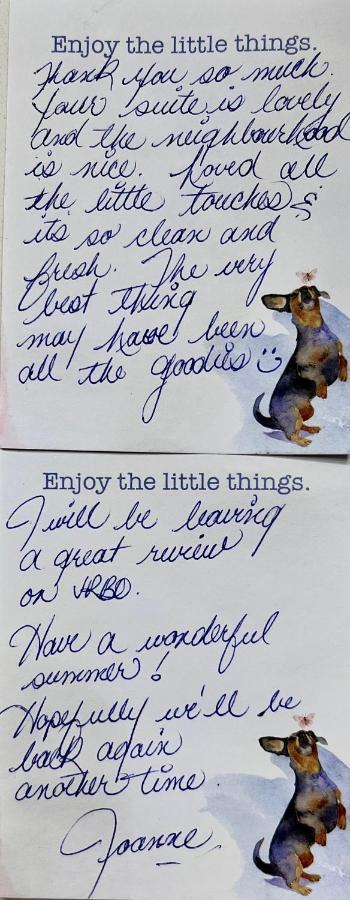 Enjoy the little things.
Thank you so much.
Your suite is lovely
and the neighbourhood
is nice. Loved all
the little touches &
its so clean and
fresh. The very
best thing
may have been
all the goodies :)
Enjoy the little things.
I will be leaving
a great review
on VRBO.
Have a wonderful
summer!
Hopefully we'll be
back again
another time.
Joanne